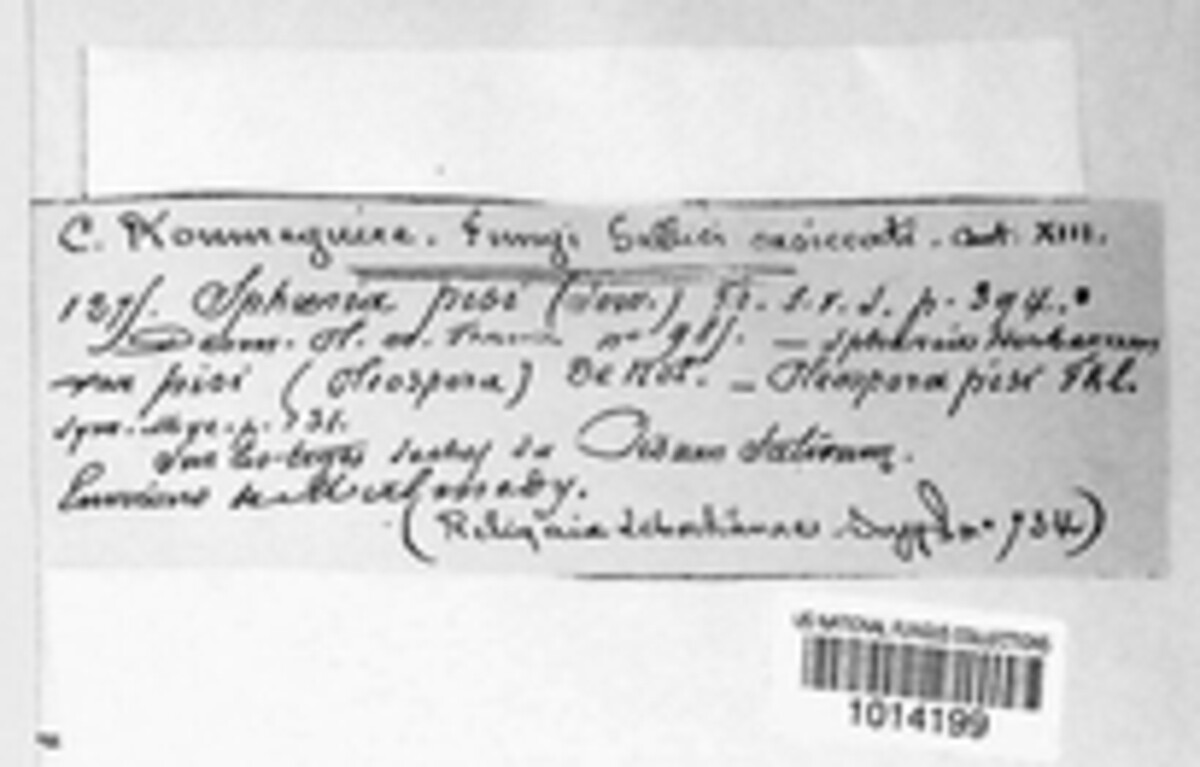 C. Roumeguère. Fungi Gallici exsiccati. Cent. XIII.
Sphaeria pisi (Sow.) Fr. S. V. S. p. 394.
Desm. Pl. cr. France n° – Sphaeria Herbarum
var pisi ( Pleospora) De Not. – Pleospora pisi Fkl.
Sym. Myc. p. 131.
Sur les tiges sèches du Pisum Sativum.
Environs
( Reliquiae Libertianae. Suppl. n° 134)
US NATIONAL FUNGUS COLLECTIONS
1014199